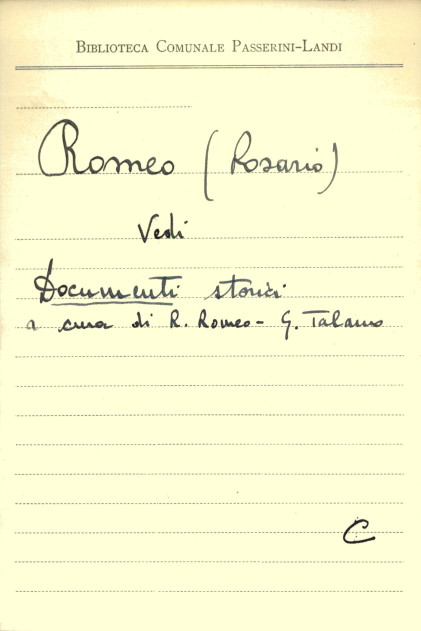 BIBLIOTECA COMUNALE PASSERINI-LANDI
Romeo (Rosario)
Vedi
Documenti storici
a cura di R. Romeo - G. Talamo
C